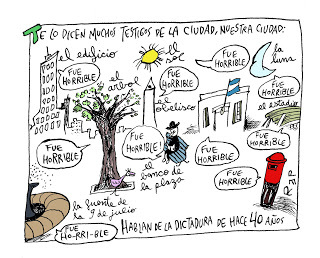 TE LO DICEN MUCHOS TESTIGOS DE LA CIUDAD, NUESTRA CIUDAD:
el edificio
FUE HORRIBLE
el sol
FUE HORRIBLE
FUE HORRIBLE
la luna
el arbol
FUE HORRIBLE
el obelisco
FUE HORRIBLE
el estadio
FUE HORRIBLE
FUE HORRIBLE
FUE HORRIBLE!
FUE HORRIBLE
el banco de la plaza
FUE HORRIBLE
la fuente de la 9 de julio
FUE HO-RRI-BLE
HABLAN DE LA DICTADURA DE HACE 40 AÑOS
REP